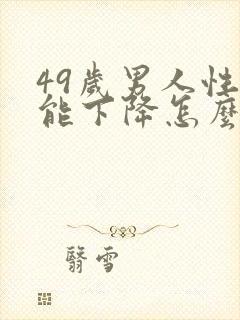 49歲男人性
能下降怎麼
翳雪